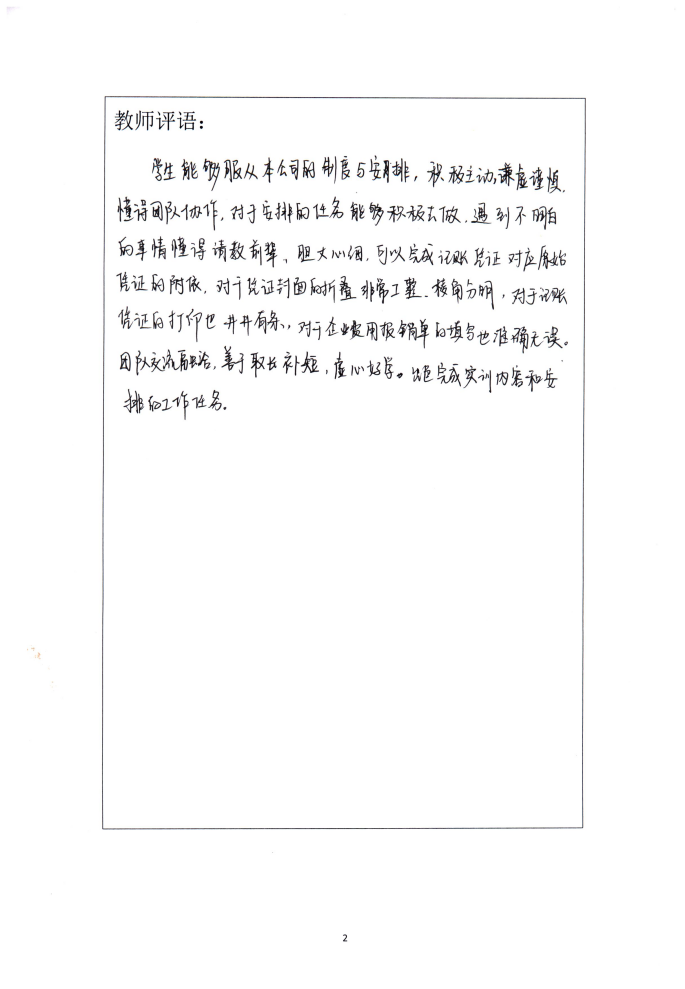 教师评语：
学生能够服从本公司的制度与安排，积极主动，谦虚谨慎，
懂得团队协作，对于安排的任务能够积极去做，遇到不明白
的事情懂得请教前辈、胆大心细，可以完成记账凭证对应原始
凭证的附依，对于凭证封面的折叠非常工整、棱角分明，对于记账
凭证的打印也井井有条，对于企业费用报销单的填写也准确无误。
团队交流融洽，善于取长补短，虚心好学。完成实训内容和安
排的工作任务。
2